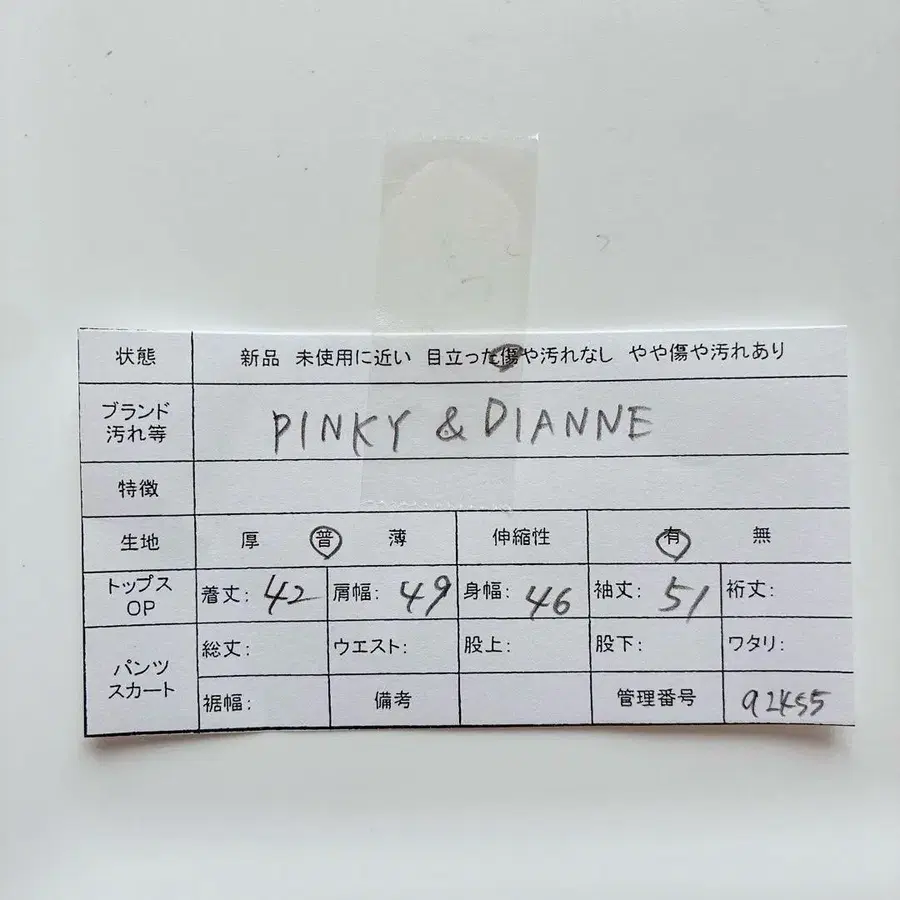 状態 新品 未使用に近い 目立った傷や汚れなし やや傷や汚れあり
ブランド
汚れ等
PINKY & DIANNE
特徴
生地 厚 普 薄 伸縮性 有 無
トップス
OP
着丈: 42 肩幅: 49 身幅: 46 袖丈: 51 裄丈:
パンツ
スカート
総丈: ウエスト: 股上: 股下: ワタリ:
裾幅: 備考 管理番号